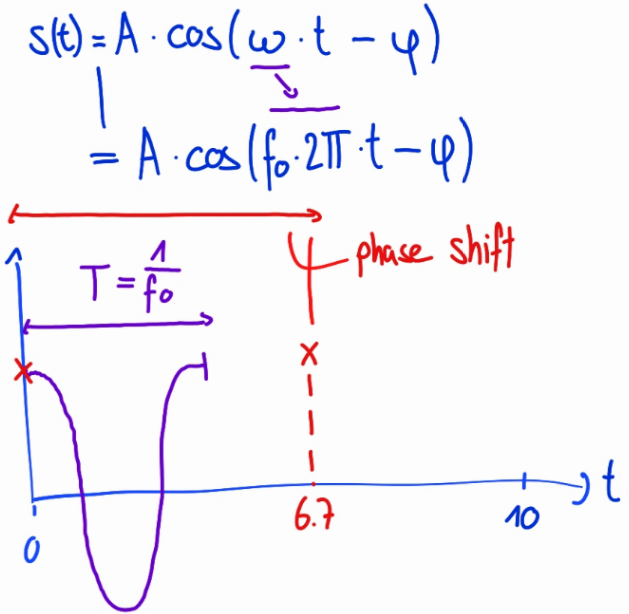 s(t) = A · cos(ω · t − φ)
= A · cos(f₀ · 2π · t − φ)
T = 1/f₀
φ phase shift
0
6.7
10
t